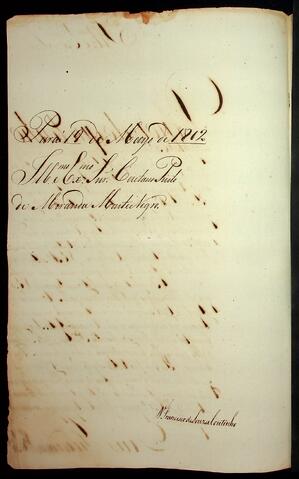 Pará 19 de Março de 1802
Ill.mo e Ex.mo Snr. Caetano Pinto
de Miranda Montenegro.
D. Francisco de Souza Coutinho